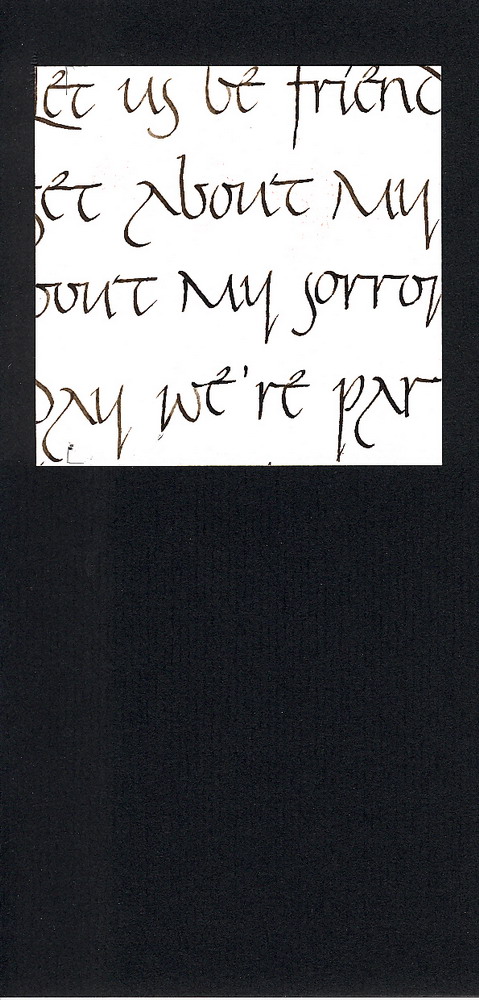 Let us be friend
get about my
bout my sorrow
day we're par